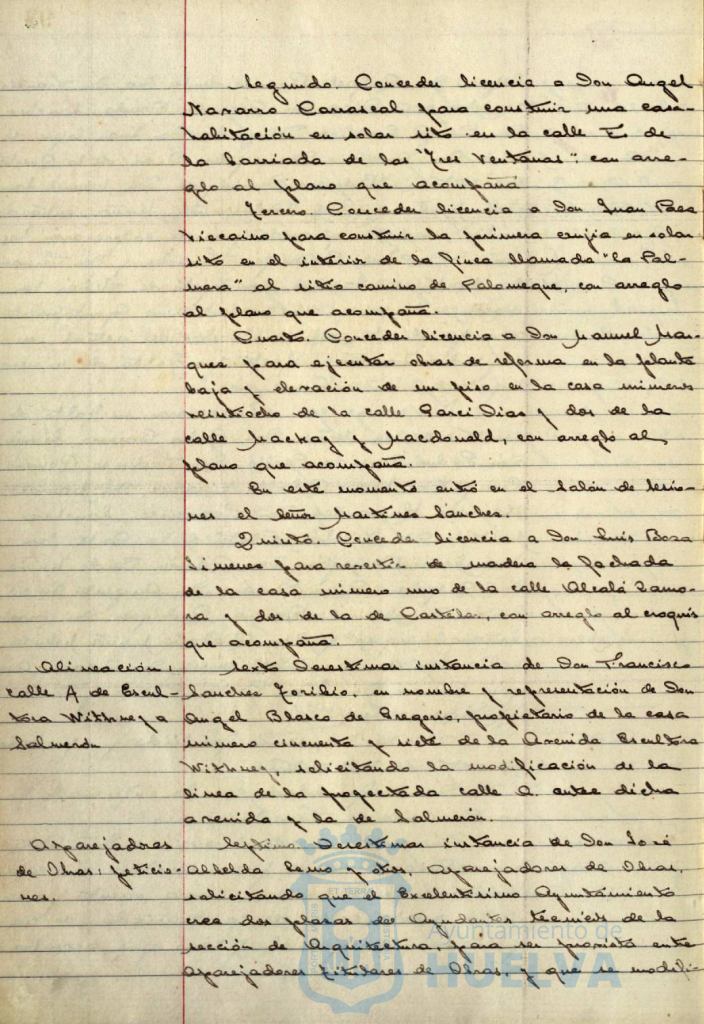 Segundo. Conceder licencia a Don Angel
Navarro Carrascal para construir una casa-
habitación en solar sito en la calle E. de
la barriada de las "Tres Ventanas": con arre-
glo al plano que acompaña
Tercero. Conceder licencia a Don Juan Paea
Viccaino para construir la primera crujia en solar
sito en el interior de la finca llamada "La Pal-
mera" al sitio camino de Palomeque, con arreglo
al plano que acompaña.
Cuarto. Conceder licencia a Don Manuel Mar-
quez para ejecutar obras de reforma en la planta
baja y elevación de un piso en la casa números
veintiocho de la calle Garci Dias y dos de la
calle Mackay y Macdonald, con arreglo al
plano que acompaña.
En este momento entró en el Salón de Sesio-
nes el Señor Martines Sanches.
Quinto. Conceder licencia a Don Luis Bosa
Simenes para revestir de madera la fachada
de la casa número uno de la calle Alcalá Zamo-
ra y dos de la de Castelar, con arreglo al croquis
que acompaña.
Alineación:
calle A de Escul-
tora Withney a
Salmerón
Sexto Desestimar instancia de Don Francisco
Sanches Toribio, en nombre y representación de Don
Angel Blasco de Gregorio, propietario de la casa
número cincuenta y siete de la Avenida Escultora
Withney, solicitando la modificación de la
linea de la proyectada calle A. entre dicha
avenida y la de Salmerón.
Aparejadores
de Obras: peticio-
nes.
Septimo. Desestimar instancia de Don José
Albelda y otros, Aparejadores de Obras,
solicitando que el Excelentisimo Ayuntamiento
crea dos plazas de Ayudantes técnicos de la
sección de Arquitectura, para ser provista entre
Aparejadores titulares de Obras, y que se modifi-
Ayuntamiento de
HUELVA